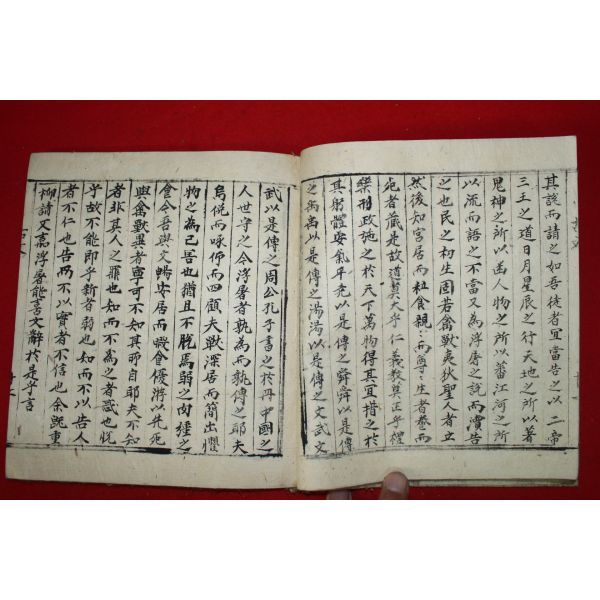 其說而請之如吾徒者宜當告之以二帝
三王之道日月星辰之行天地之所以著
鬼神之所以幽人物之所以蕃江河之所
以流而語之不當又為浮屠之說而瀆告
之也民之初生固若禽獸夷狄聖人者立
然後知宮居而粒食親〻而尊〻生者養而
死者藏是故道莫大乎仁義教莫正乎禮
樂刑政施之於天下萬物得其宜措之於
其躬體安氣平堯以是傳之舜舜以是傳
之禹禹以是傳之湯湯以是傳之文武文
武以是傳之周公孔子書之於冊中國之
人世守之今浮屠者孰為而孰傳之耶夫
鳥俛而啄仰而四顧夫獸深居而簡出懼
物之為己害也猶且不脫焉弱之肉強之
食今吾與文暢安居而暇食優游以生死
與禽獸異者寧可不知其所自耶夫不知
者非其人之罪也知而不為之者惑也悅
乎故不能即乎新者弱也知而不以告人
者不仁也告而不以實者不信也余既重
柳請又嘉浮屠能喜文辭於是乎言